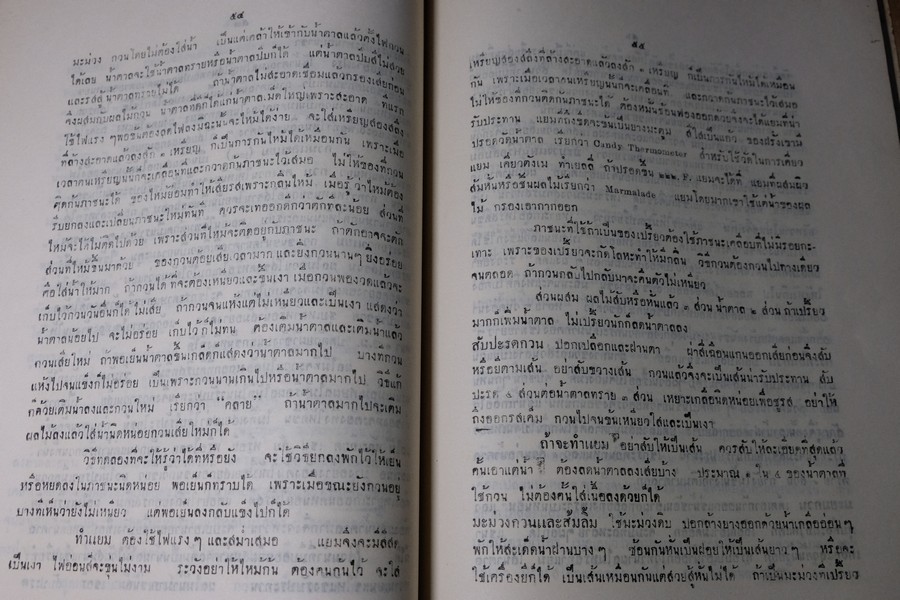 ๕๔
มะม่วง กวนโดยไม่ต้องใส่น้ำ เป็นแต่เคล้าให้เข้ากับน้ำตาลแล้วตั้งไฟกวน
ได้เลย น้ำตาลจะใช้น้ำตาลทรายหรือน้ำตาลปึกก็ได้ แต่น้ำตาลปึกสีไม่สวย
และรสสู้น้ำตาลทรายไม่ได้ ถ้าน้ำตาลไม่สะอาดเชื่อมแล้วกรองเสียก่อน
จึงผสมกับผลไม้กวน น้ำตาลที่ดีก็ได้แก่น้ำตาลเม็ดใหญ่เพราะสะอาด ที่แรก
ใช้ไฟแรง ๆ พอข้นต้องลดไฟลงมิฉะนั้นจะไหม้ได้ง่าย จะใส่เหรียญสองสลึง
ที่ล้างสะอาดแล้วลงสัก ๑ เหรียญ ก็เป็นการกันไหม้ได้เหมือนกัน เพราะเมื่อ
เวลาคนเหรียญนั้นก็จะเคลื่อนที่และกวาดก้นภาชนะไว้เสมอ ไม่ให้ของที่กวน
ติดก้นภาชนะได้ ของไหม้ย่อมทำให้เสียรสเพราะกลิ่นไหม้ เมื่อรู้ว่าไหม้ต้อง
รีบยกลงและเปลี่ยนภาชนะใหม่ทันที ควรจะเทออกดีกว่าตักทีละน้อย ส่วนที่
ไหม้จะได้ไม่ติดไปด้วย เพราะส่วนที่ไหม้จะติดอยู่กับภาชนะ ถ้าตักอาจจะตัก
ส่วนที่ไหม้ขึ้นมาด้วย ของกวนต้องเสียเวลามาก และยิ่งกวนนาน ๆ ยิ่งอร่อย
คือใส่น้ำให้มาก ถ้ากวนได้ที่จะต้องเหนียวและขึ้นเงา เมื่อกวนพองวดแล้วจะ
เก็บไว้กวนวันอื่นก็ได้ไม่เสีย ถ้ากวนจนแห้งแต่ไม่เหนียวและเป็นเงา แสดงว่า
น้ำตาลน้อยไป จะไม่อร่อย เก็บไว้ก็ไม่ทน ต้องเติมน้ำตาลและเติมน้ำแล้ว
กวนเสียใหม่ ถ้าพอเย็นน้ำตาลขึ้นเกล็ดก็แสดงว่าน้ำตาลมากไป บางทีกวน
แห้งไปจนแข็งก็ไม่อร่อย เป็นเพราะกวนนานเกินไปหรือน้ำตาลมากไป วิธีแก้
ก็ด้วยเติมน้ำลงและกวนใหม่ เรียกว่า “คลาย” ถ้าน้ำตาลมากไปจะเติม
ผลไม้ลงแล้วใส่น้ำนิดหน่อยกวนเสียใหม่ก็ได้
วิธีทดลองที่จะให้รู้ว่าได้ที่หรือยัง จะใช้วิธียกลงพักไว้ให้เย็น
หรือหยดลงในภาชนะนิดหน่อย พอเย็นก็ทราบได้ เพราะเมื่อขณะยังกวนอยู่
บางทีเห็นว่ายังไม่เหนียว แต่พอเย็นลงกลับแข็งไปก็ได้
ทำแยม ต้องใช้ไฟแรง ๆ และสม่ำเสมอ แยมจึงจะมีสีสด
เป็นเงา ไฟอ่อนสีจะขุ่นไม่งาม ระวังอย่าให้ไหม้ก้น ต้องคนก้นไว้ จะใส่
๕๕
เหรียญสองสลึงที่ล้างสะอาดแล้วลงสัก ๑ เหรียญ ก็เป็นการกันไหม้ได้เหมือน
กัน เพราะเมื่อเวลาคนเหรียญนั้นก็จะเคลื่อนที่ และกวาดก้นภาชนะไว้เสมอ
ไม่ให้ของที่กวนติดก้นภาชนะได้ ต้องหมั่นช้อนฟองทิ้งด้วยจึงจะได้แยมที่น่า
รับประทาน แยมก็ถึงขีดจะข้นเป็นยางมะตูม ที่ใส่เป็นแล้ว ของฝรั่งเขามี
ปรอดวัดน้ำตาล เรียกว่า Candy Thermometer สำหรับใช้วัดในการเคี่ยว
แยม เคี่ยวตังเม ทำเยลลี่ ถ้าปรอดขึ้น ๒๒๒ F. แยมจะได้ที่ แยมที่ผสมผิว
ส้มหั่นหรือชิ้นผลไม้เรียกว่า Marmalade แยมโดยมากเขาใช้แต่น้ำของผล
ไม้ กรองเอากากออก
ภาชนะที่ใช้ถ้าเป็นของเปรี้ยวต้องใช้ภาชนะเคลือบที่ไม่มีรอยกะ-
เทาะ เพราะของเปรี้ยวจะกัดโลหะทำให้มีกลิ่น วิธีกวนต้องกวนไปทางเดียว
จนตลอด ถ้ากวนกลับไปกลับมาจะคืนตัวไม่เหนียว
ส่วนผสม ผลไม้สับหรือหั่นแล้ว ๓ ส่วน น้ำตาล ๒ ส่วน ถ้าเปรี้ยว
มากก็เพิ่มน้ำตาล ไม่เปรี้ยวนักก็ลดน้ำตาลลง
สับปะรดกวน ปอกเปลือกและฝานตา ผ่าสี่เฉือนแกนออกเสียก่อนจึงสับ
หรือยีตามเส้น อย่าสับขวางเส้น กวนแล้วจึงจะเป็นเส้นน่ารับประทาน สับ
ปะรด ๕ ส่วนต่อน้ำตาลทราย ๓ ส่วน เหยาะเกลือนิดหน่อยเพื่อชูรส อย่าให้
ถึงออกรสเค็ม กวนไปจนข้นเหนียวใสและเป็นเงา
ถ้าจะทำแยม อย่าสับให้เป็นเส้น ควรสับให้ละเอียดที่สุดแล้ว
คั้นเอาแต่น้ำ ต้องลดน้ำตาลลงเสียบ้าง ประมาณ ๑ ใน ๔ ของน้ำตาลที่
ใช้กวน ไม่ต้องคั้นใส่เนื้อลงด้วยก็ได้
มะม่วงกวนและส้มลิ้ม ใช้มะม่วงดิบ ปอกล้างยางออกด้วยน้ำเกลืออ่อน ๆ
พักให้สะเด็ดน้ำฝานบาง ๆ ซ้อนกันหั่นเป็นฝอยให้เป็นเส้นยาว ๆ หรือจะ
ใช้เครื่องยีก็ได้ เป็นเส้นเหมือนกันแต่สวยสู้หั่นไม่ได้ ถ้าเป็นมะม่วงที่เปรี้ยว